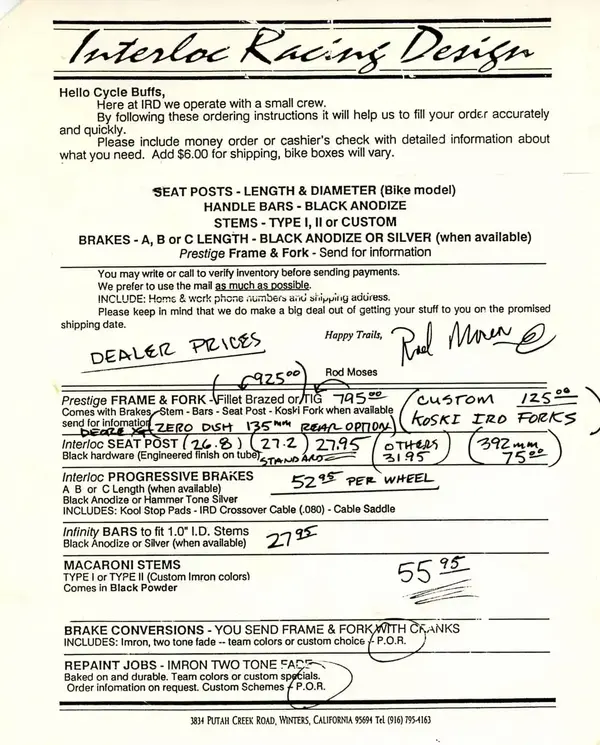 Interloc Racing Design
Hello Cycle Buffs,
Here at IRD we operate with a small crew.
By following these ordering instructions it will help us to fill your order accurately
and quickly.
Please include money order or cashier's check with detailed information about
what you need. Add $6.00 for shipping, bike boxes will vary.
SEAT POSTS - LENGTH & DIAMETER (Bike model)
HANDLE BARS - BLACK ANODIZE
STEMS - TYPE I, II or CUSTOM
BRAKES - A, B or C LENGTH - BLACK ANODIZE OR SILVER (when available)
Prestige Frame & Fork - Send for information
You may write or call to verify inventory before sending payments.
We prefer to use the mail as much as possible.
INCLUDE: Home & work phone numbers and shipping address.
Please keep in mind that we do make a big deal out of getting your stuff to you on the promised
shipping date.
Happy Trails, Rod Moses
DEALER PRICES
Rod Moses
(925 00)
Prestige FRAME & FORK - Fillet Brazed or TIG 795 00 (CUSTOM 125 00
Comes with Brakes - Stem - Bars - Seat Post - Koski Fork when available (KOSKI IRD FORKS
send for infomation ZERO DISH 135mm REAR OPTION)
Interloc SEAT POST (26.8) (27.2) 27.95 (OTHERS 31 95) (392mm 75 00)
Black hardware (Engineered finish on tube) STANDARD
Interloc PROGRESSIVE BRAKES 52 95 PER WHEEL
A B or C Length (when available)
Black Anodize or Hammer Tone Silver
INCLUDES: Kool Stop Pads - IRD Crossover Cable (.080) - Cable Saddle
Infinity BARS to fit 1.0" I.D. Stems
Black Anodize or Silver (when available) 27 95
MACARONI STEMS
TYPE I or TYPE II (Custom Imron colors) 55 95
Comes in Black Powder
BRAKE CONVERSIONS - YOU SEND FRAME & FORK WITH CRANKS
INCLUDES: Imron, two tone fade -- team colors or custom choice - P.O.R.
REPAINT JOBS - IMRON TWO TONE FADE
Baked on and durable. Team colors or custom specials.
Order infomation on request. Custom Schemes - P.O.R.
3834 PUTAH CREEK ROAD, WINTERS, CALIFORNIA 95694 Tel (916) 795-4163